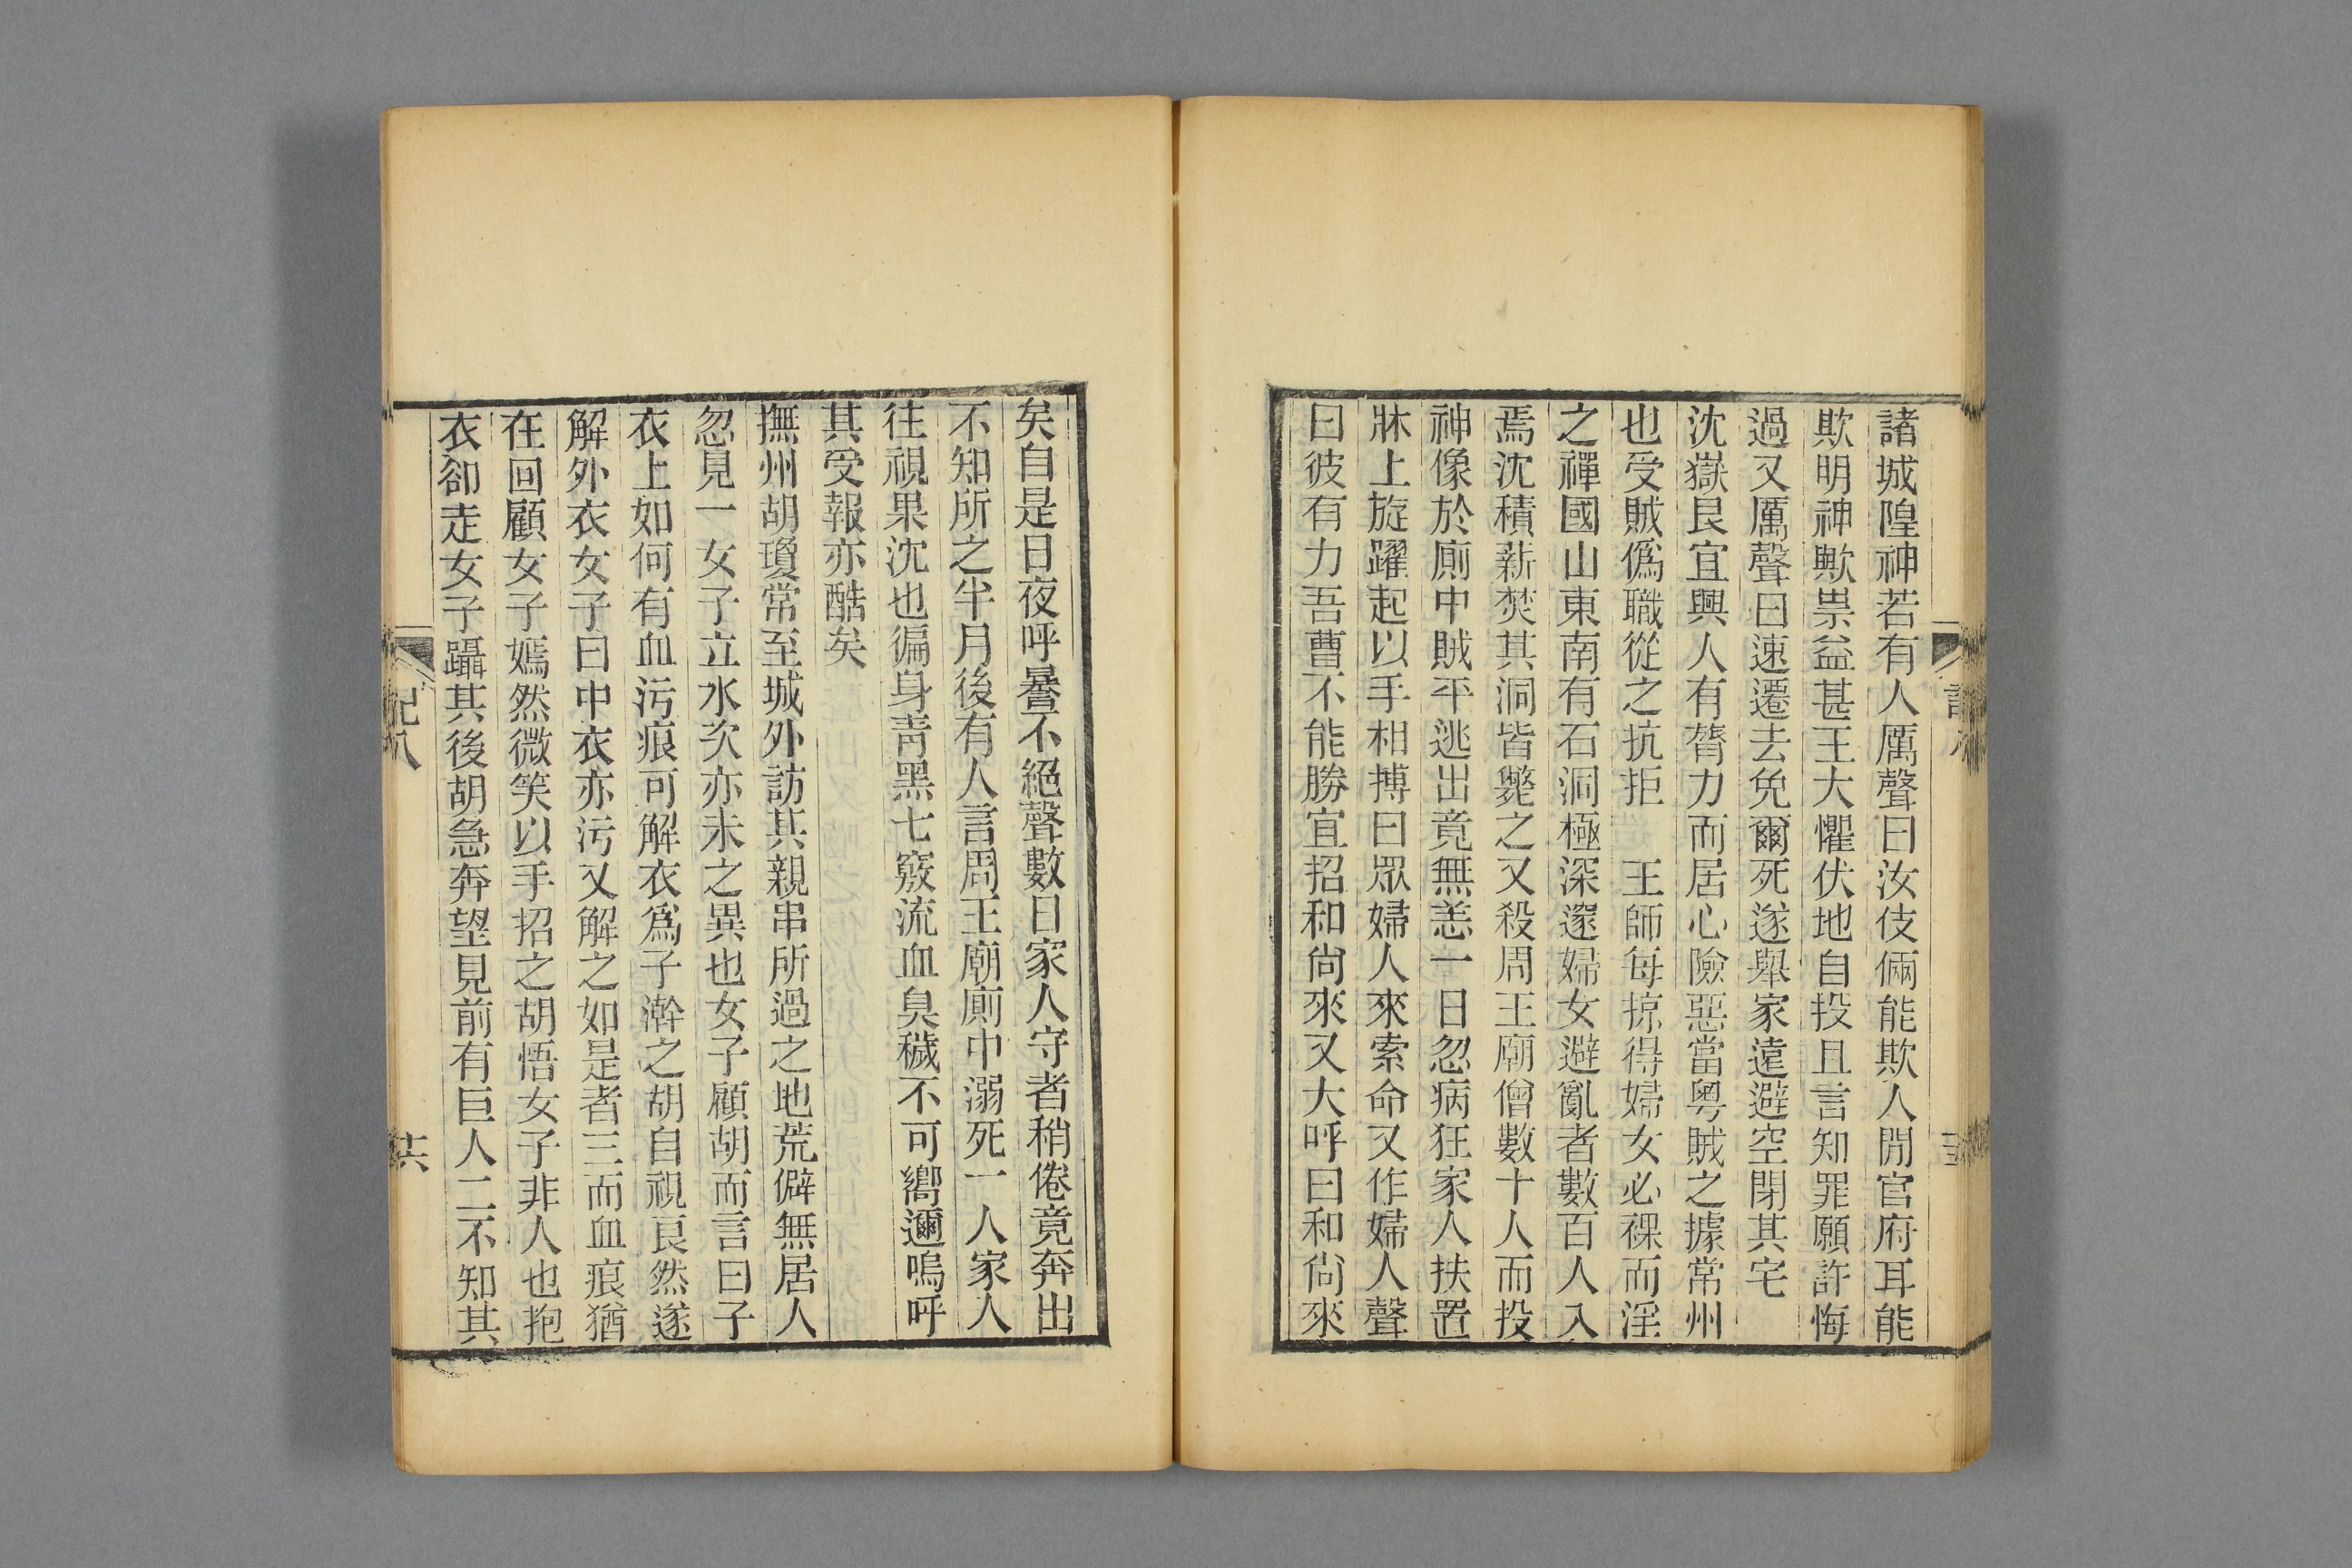 諸城隍神若有人厲聲曰汝伎倆能欺人閒官府耳能
欺明神歟祟益甚王大懼伏地自投且言知罪願許悔
過又厲聲曰速遷去免爾死遂舉家遠避空閉其宅
沈嶽艮宜興人有膂力而居心險惡當粤賊之據常州
也受賊僞職從之抗拒　王師每掠得婦女必裸而淫
之禪國山東南有石洞極深邃婦女避亂者數百人入
焉沈積薪焚其洞皆斃之又殺周王廟僧數十人而投
神像於廁中賊平逃出竟無恙一日忽病狂家人扶置
牀上旋躍起以手相搏曰眾婦人來索命又作婦人聲
曰彼有力吾曹不能勝宜招和尙來又大呼曰和尙來
矣自是日夜呼謈不絕聲數日家人守者稍倦竟奔出
不知所之半月後有人言周王廟廁中溺死一人家人
往視果沈也徧身靑黑七竅流血臭穢不可嚮邇嗚呼
其受報亦酷矣
撫州胡瓊常至城外訪其親串所過之地荒僻無居人
忽見一女子立水次亦未之異也女子顧胡而言曰子
衣上如何有血污痕可解衣爲子澣之胡自視良然遂
解外衣女子曰中衣亦污又解之如是者三而血痕猶
在回顧女子嫣然微笑以手招之胡悟女子非人也抱
衣卻走女子躡其後胡急奔望見前有巨人二不知其
記八
十六